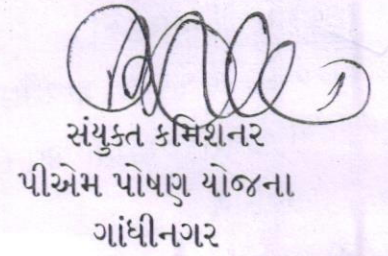 સંયુક્ત કમિશનર
પીએમ પોષણ યોજના
ગાંધીનગર